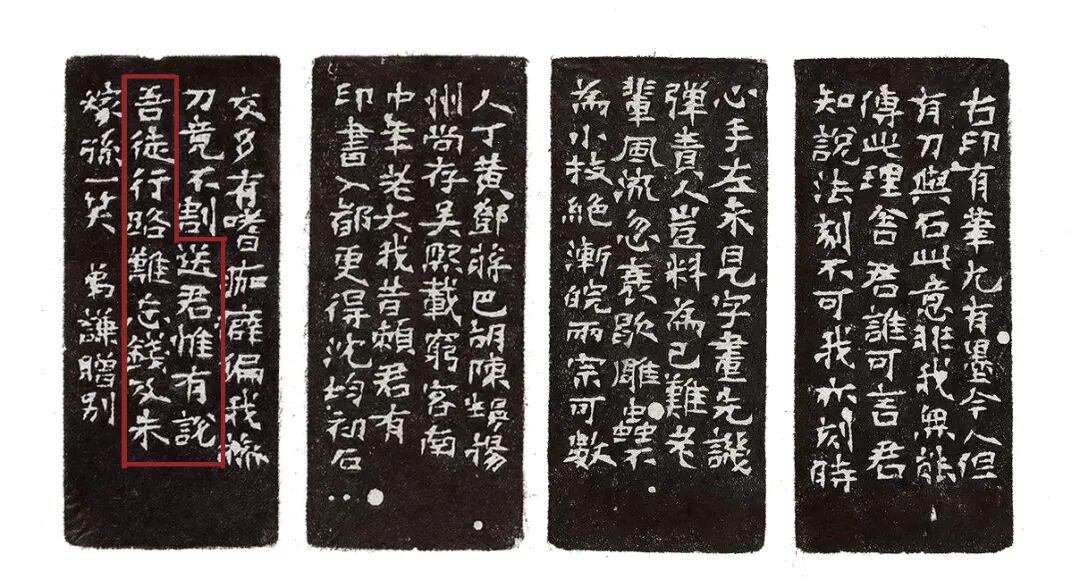 古印有筆尤有墨今人但
有刀與石此意非我無能
傳此理舍君誰可言君
知說法刻不可我亦刻時
心手左未見字畫先譏
彈責人豈料為己難老
輩風流忽衰歇雕蟲不
為小技絕漸皖兩宗可數
人丁黃鄧蔣巴胡陳揚
州尚存吳熙載窮客南
中年老大我昔賴君有
印書入都更得沈均初石
交多有嗜痂癖偏我操
刀竟不割送君惟有說
吾徒行路難忘錢及朱
稼孫一笑 弟謙贈別